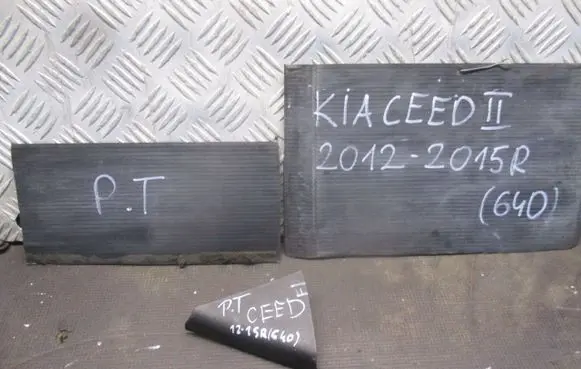 P.T
KIA CEED II
2012-2015R
(640)
P.T CEED
12-15R(640)